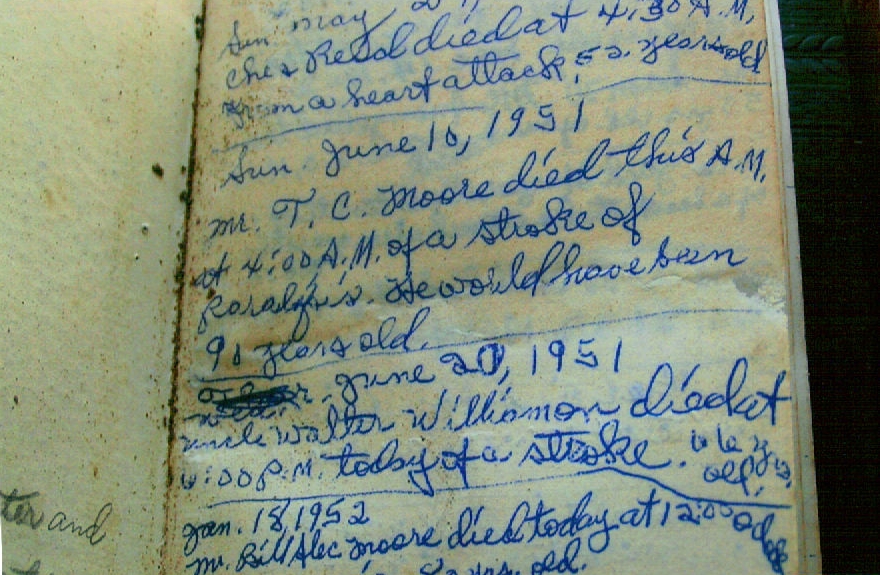 Sun May 20,
Ches Reed died at 4:30 A.M.
from a heart attack, 52 years old
Sun. June 10, 1951
Mr. T. C. Moore died this A.M.
at 4:00 A.M. of a stroke of
Paralysis. He would have been
90 years old.
June 20, 1951
Wed.
uncle Walter Williamson died at
:00 P.M. today of a stroke.
yrs.
old.
Jan. 18, 1952
Mr. Bill Alec Moore died today at 12:00 oclock
yrs. old.
ter and